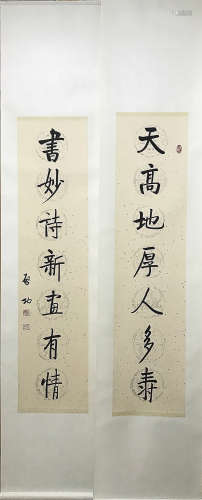 天高地厚人多寿
书妙诗新画有情
启功